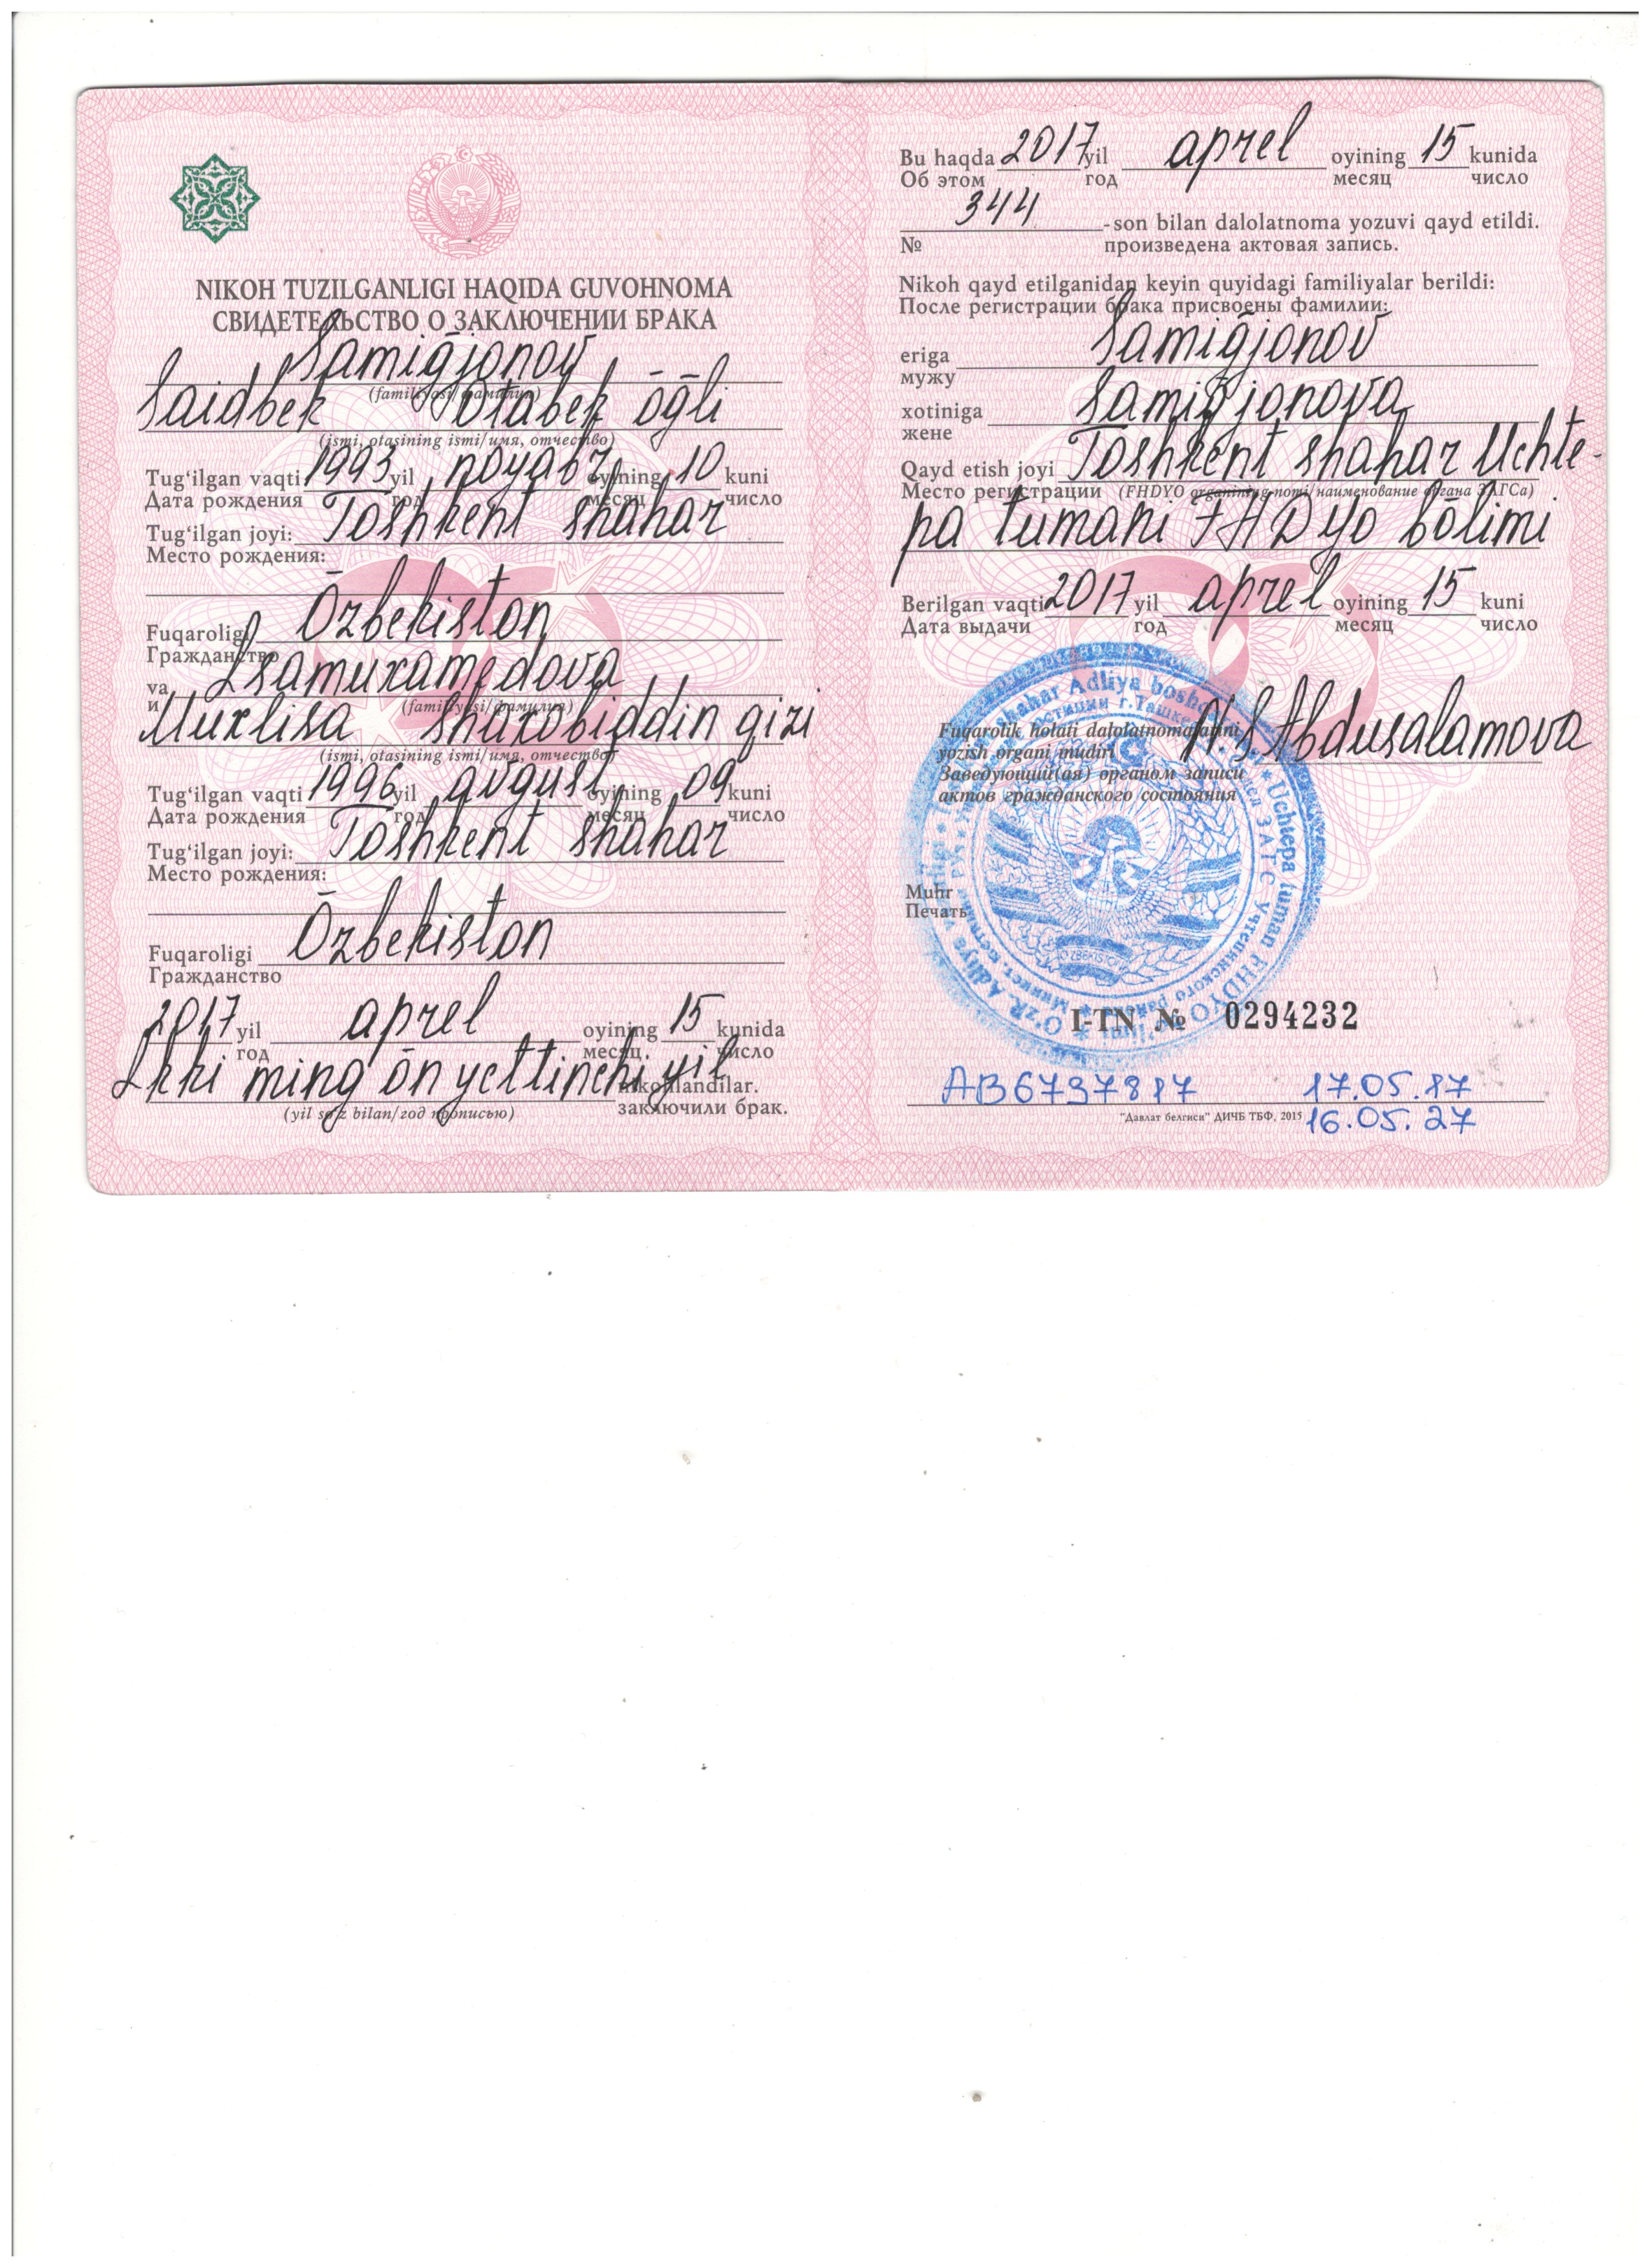 NIKOH TUZILGANLIGI HAQIDA GUVOHNOMA
СВИДЕТЕЛЬСТВО О ЗАКЛЮЧЕНИИ БРАКА
Samiḡjonov
(familiyasi/фамилия)
Saidbek Otabek ōḡli
(ismi, otasining ismi/имя, отчество)
Tug‘ilgan vaqti 1993 yil noyabr oyining 10 kuni
Дата рождения год месяц число
Tug‘ilgan joyi: Toshkent shahar
Место рождения:
Fuqaroligi Ōzbekiston
Гражданство
va Isamuxamedova
и (familiyasi/фамилия)
Muxlisa Shaxobiddin qizi
(ismi, otasining ismi/имя, отчество)
Tug‘ilgan vaqti 1996 yil avgust oyining 09 kuni
Дата рождения год месяц число
Tug‘ilgan joyi: Toshkent shahar
Место рождения:
Fuqaroligi Ōzbekiston
Гражданство
2017 yil aprel oyining 15 kunida
год месяц число
Ikki ming ōn yettinchi yil nikohlandilar.
(yil so‘z bilan/год прописью) заключили брак.
Bu haqda 2017 yil aprel oyining 15 kunida
Об этом год месяц число
344 -son bilan dalolatnoma yozuvi qayd etildi.
№ произведена актовая запись.
Nikoh qayd etilganidan keyin quyidagi familiyalar berildi:
После регистрации брака присвоены фамилии:
eriga Samiḡjonov
мужу
xotiniga Samiḡjonova
жене
Qayd etish joyi Toshkent shahar Uchte-
Место регистрации (FHDYO organining nomi/наименование органа ЗАГСа)
pa tumani FHDYo bōlimi
Berilgan vaqti 2017 yil aprel oyining 15 kuni
Дата выдачи год месяц число
Fuqarolik holati dalolatnomalarini
yozish organi mudiri N.S Abdusalamova
Заведующий(ая) органом записи
актов гражданского состояния
Muhr
Печать
I-TN № 0294232
AB6797817 17.05.17
"Давлат белгиси" ДИЧБ ТБФ, 2015 16.05.27